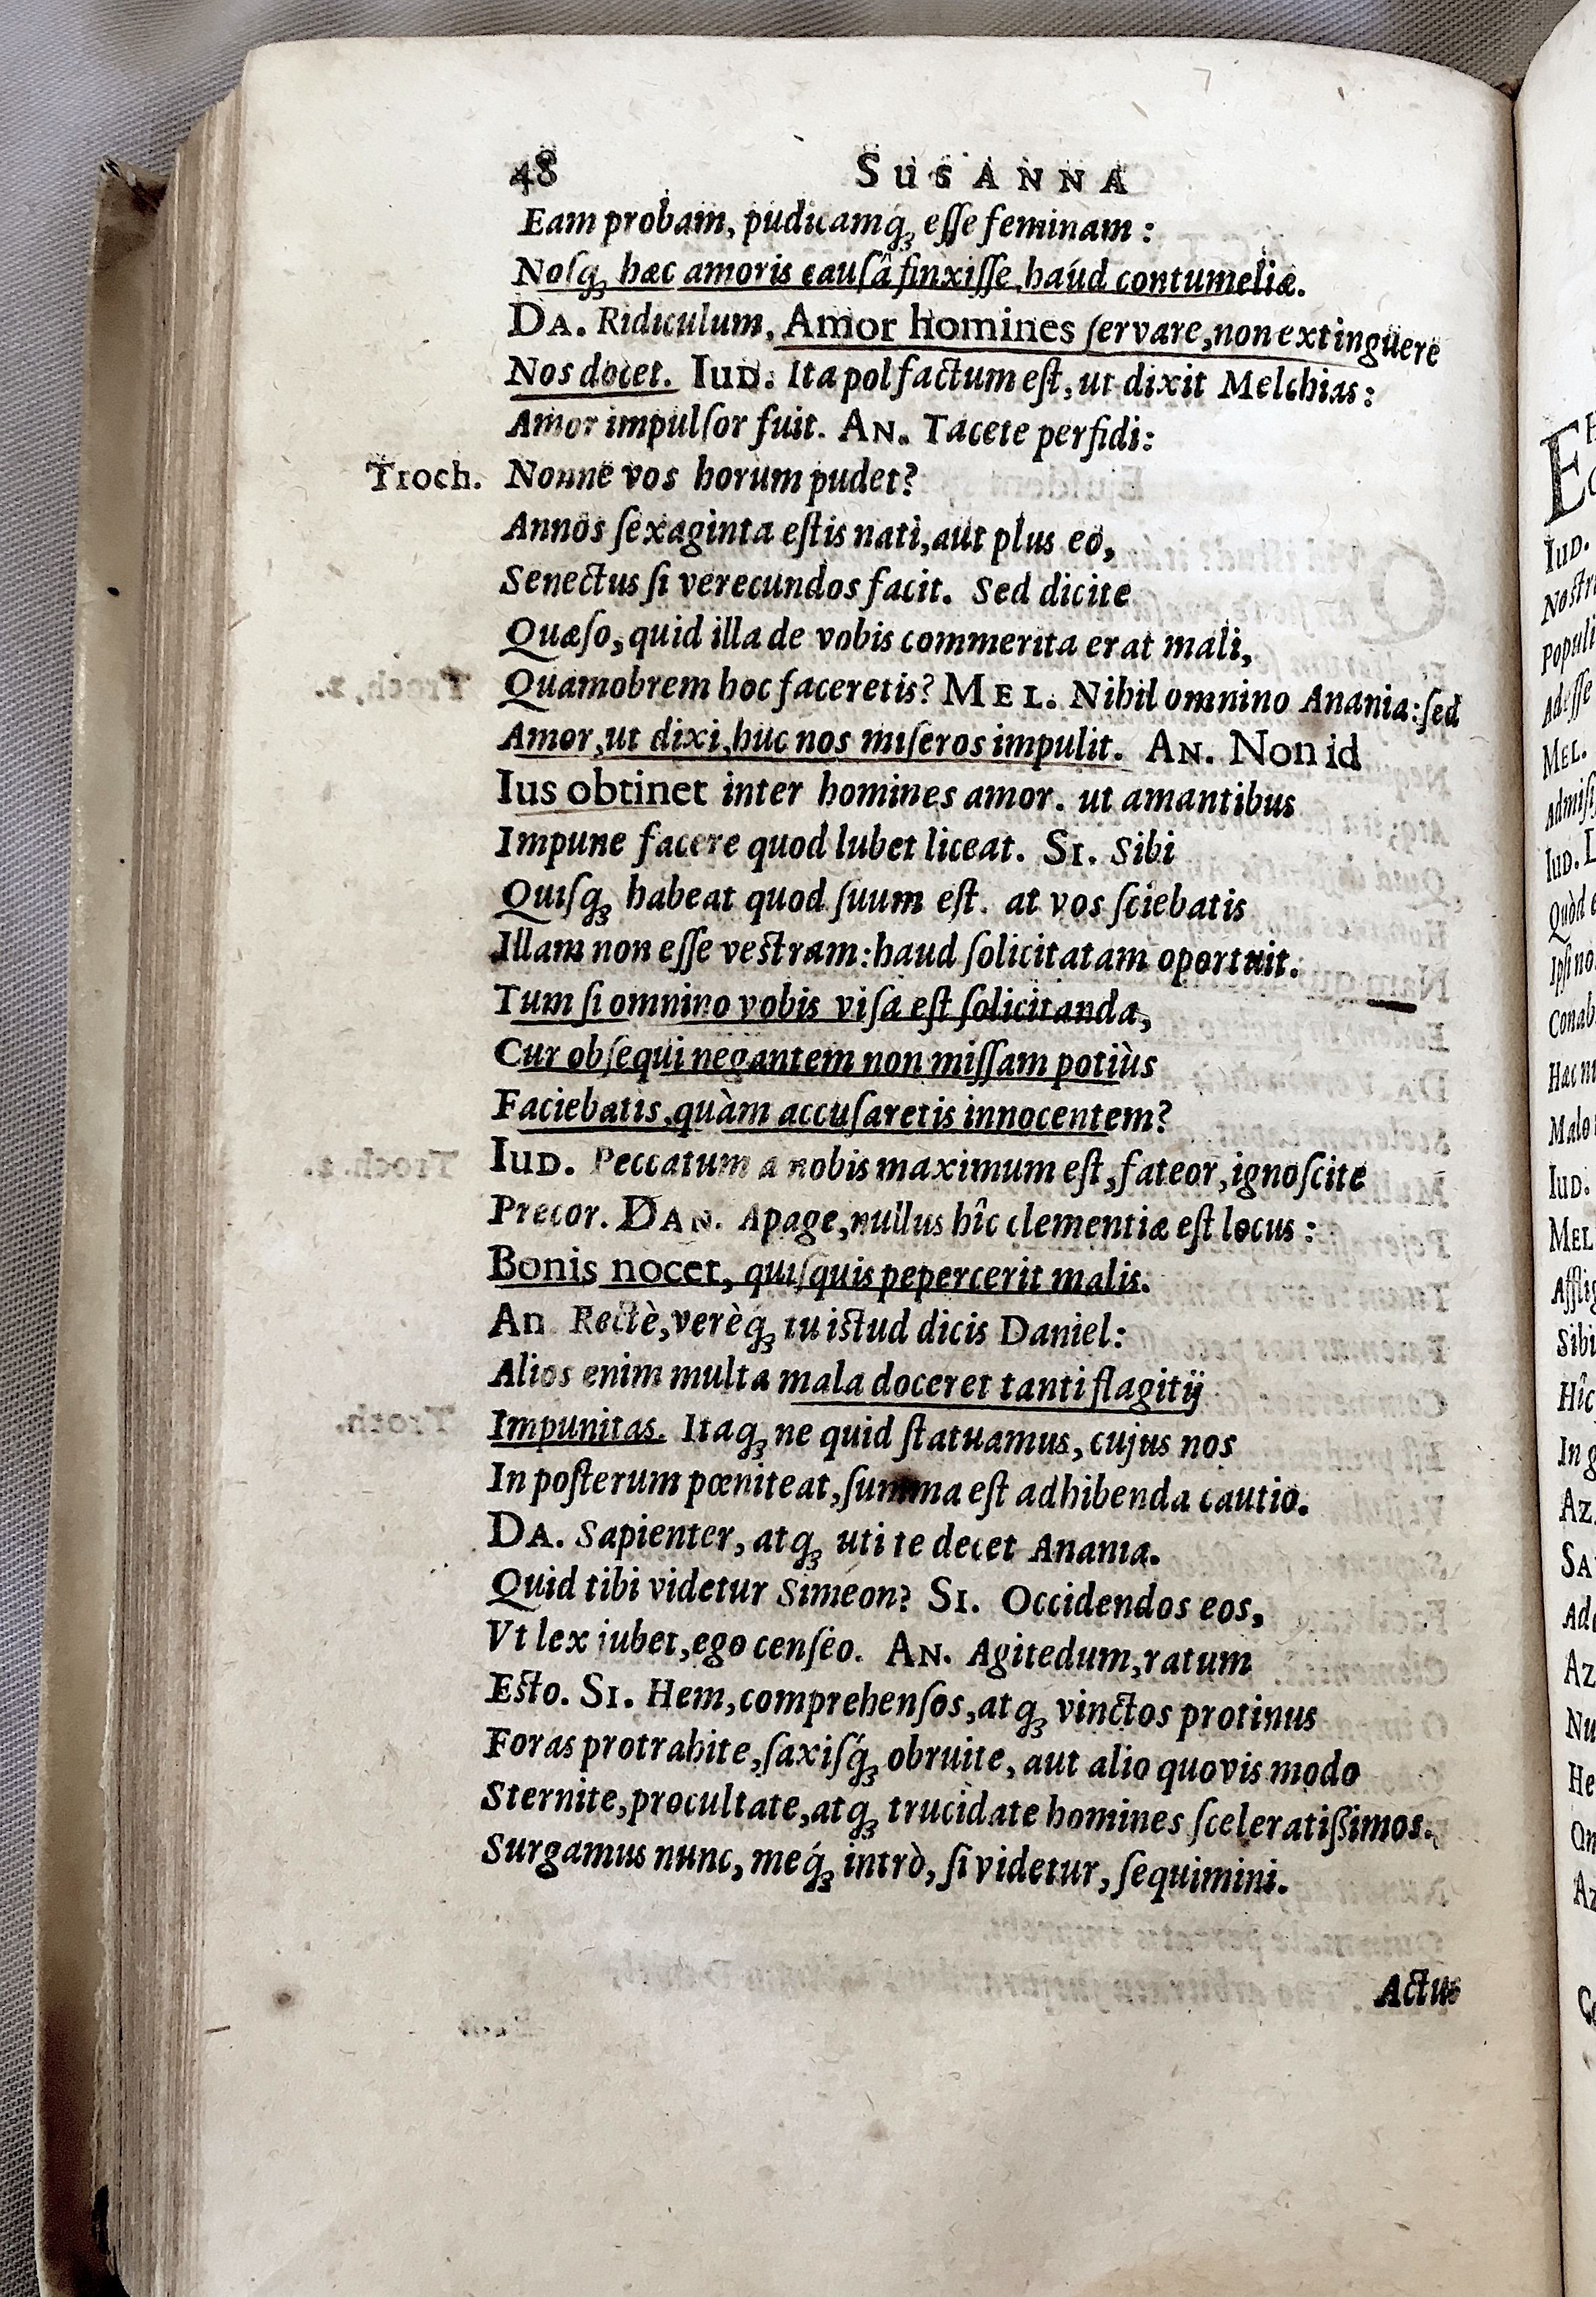 48 SUSANNA
Eam probam, pudicamq́ꝫ eſſe feminam :
Noſqꝫ hæc amoris cauſâ finxiſſe, haúd contumeliæ.
DA. Ridiculum. Amor homines ſervare, non extinguere
Nos docet. IUD. Ita pol factum eſt, ut dixit Melchias :
Amor impulſor fuit. AN. Tacete perfidi:
Troch. Nonne vos horum pudet?
Annos ſexaginta eſtis nati, aut plus eo,
Senectus ſi verecundos facit. Sed dicite
Quæſo, quid illa de vobis commerita erat mali,
Quamobrem hoc faceretis? MEL. Nihil omnino Anania: ſed
Amor, ut dixi, huc nos miſeros impulit. AN. Non id
Ius obtinet inter homines amor. ut amantibus
Impune facere quod lubet liceat. SI. Sibi
Quiſqꝫ habeat quod ſuum eſt. at vos ſciebatis
Illam non eſſe veſtram: haud ſolicitatam oportuit.
Tum ſi omnino vobis viſa eſt ſolicitanda,
Cur obſequi negantem non miſſam potiùs
Faciebatis, quàm accuſaretis innocentem?
IUD. Peccatum a nobis maximum eſt, fateor, ignoſcite
Precor. DAN. Apage, nullus hîc clementiæ eſt locus :
Bonis nocet, quiſquis pepercerit malis.
An Rectè, verèq́ꝫ tu iſtud dicis Daniel:
Alios enim multa mala doceret tanti flagitij
Impunitas. Itaqꝫ ne quid ſtatuamus, cujus nos
In poſterum pœniteat, ſumma eſt adhibenda cautio.
DA. Sapienter, atqꝫ uti te decet Anania.
Quid tibi videtur Simeon? SI. Occidendos eos,
Vt lex iubet, ego cenſeo. AN. Agitedum, ratum
Eſto. SI. Hem, comprehenſos, atqꝫ vinctos protinus
Foras protrahite, ſaxiſq́ꝫ obruite, aut alio quovis modo
Sternite, procultate, atqꝫ trucidate homines ſceleratißimos.
Surgamus nunc, meq́ꝫ intrò, ſi videtur, ſequimini.
Actus